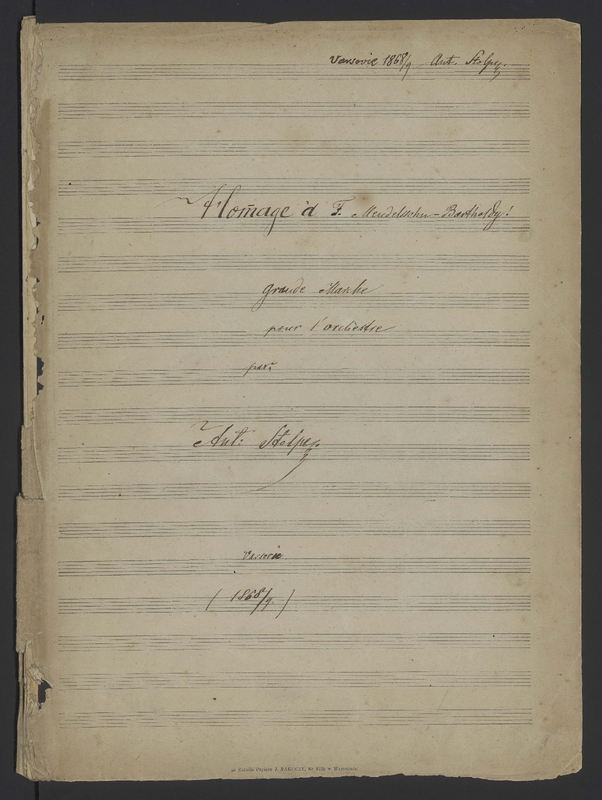 Varsovie 1868/9 Ant. Stolpe.
Homage à F. Mendelssohn-Bartholdy!
grande Marche
pour l'orchestre
par
Ant: Stolpe
Varsovie
(1868/9.)